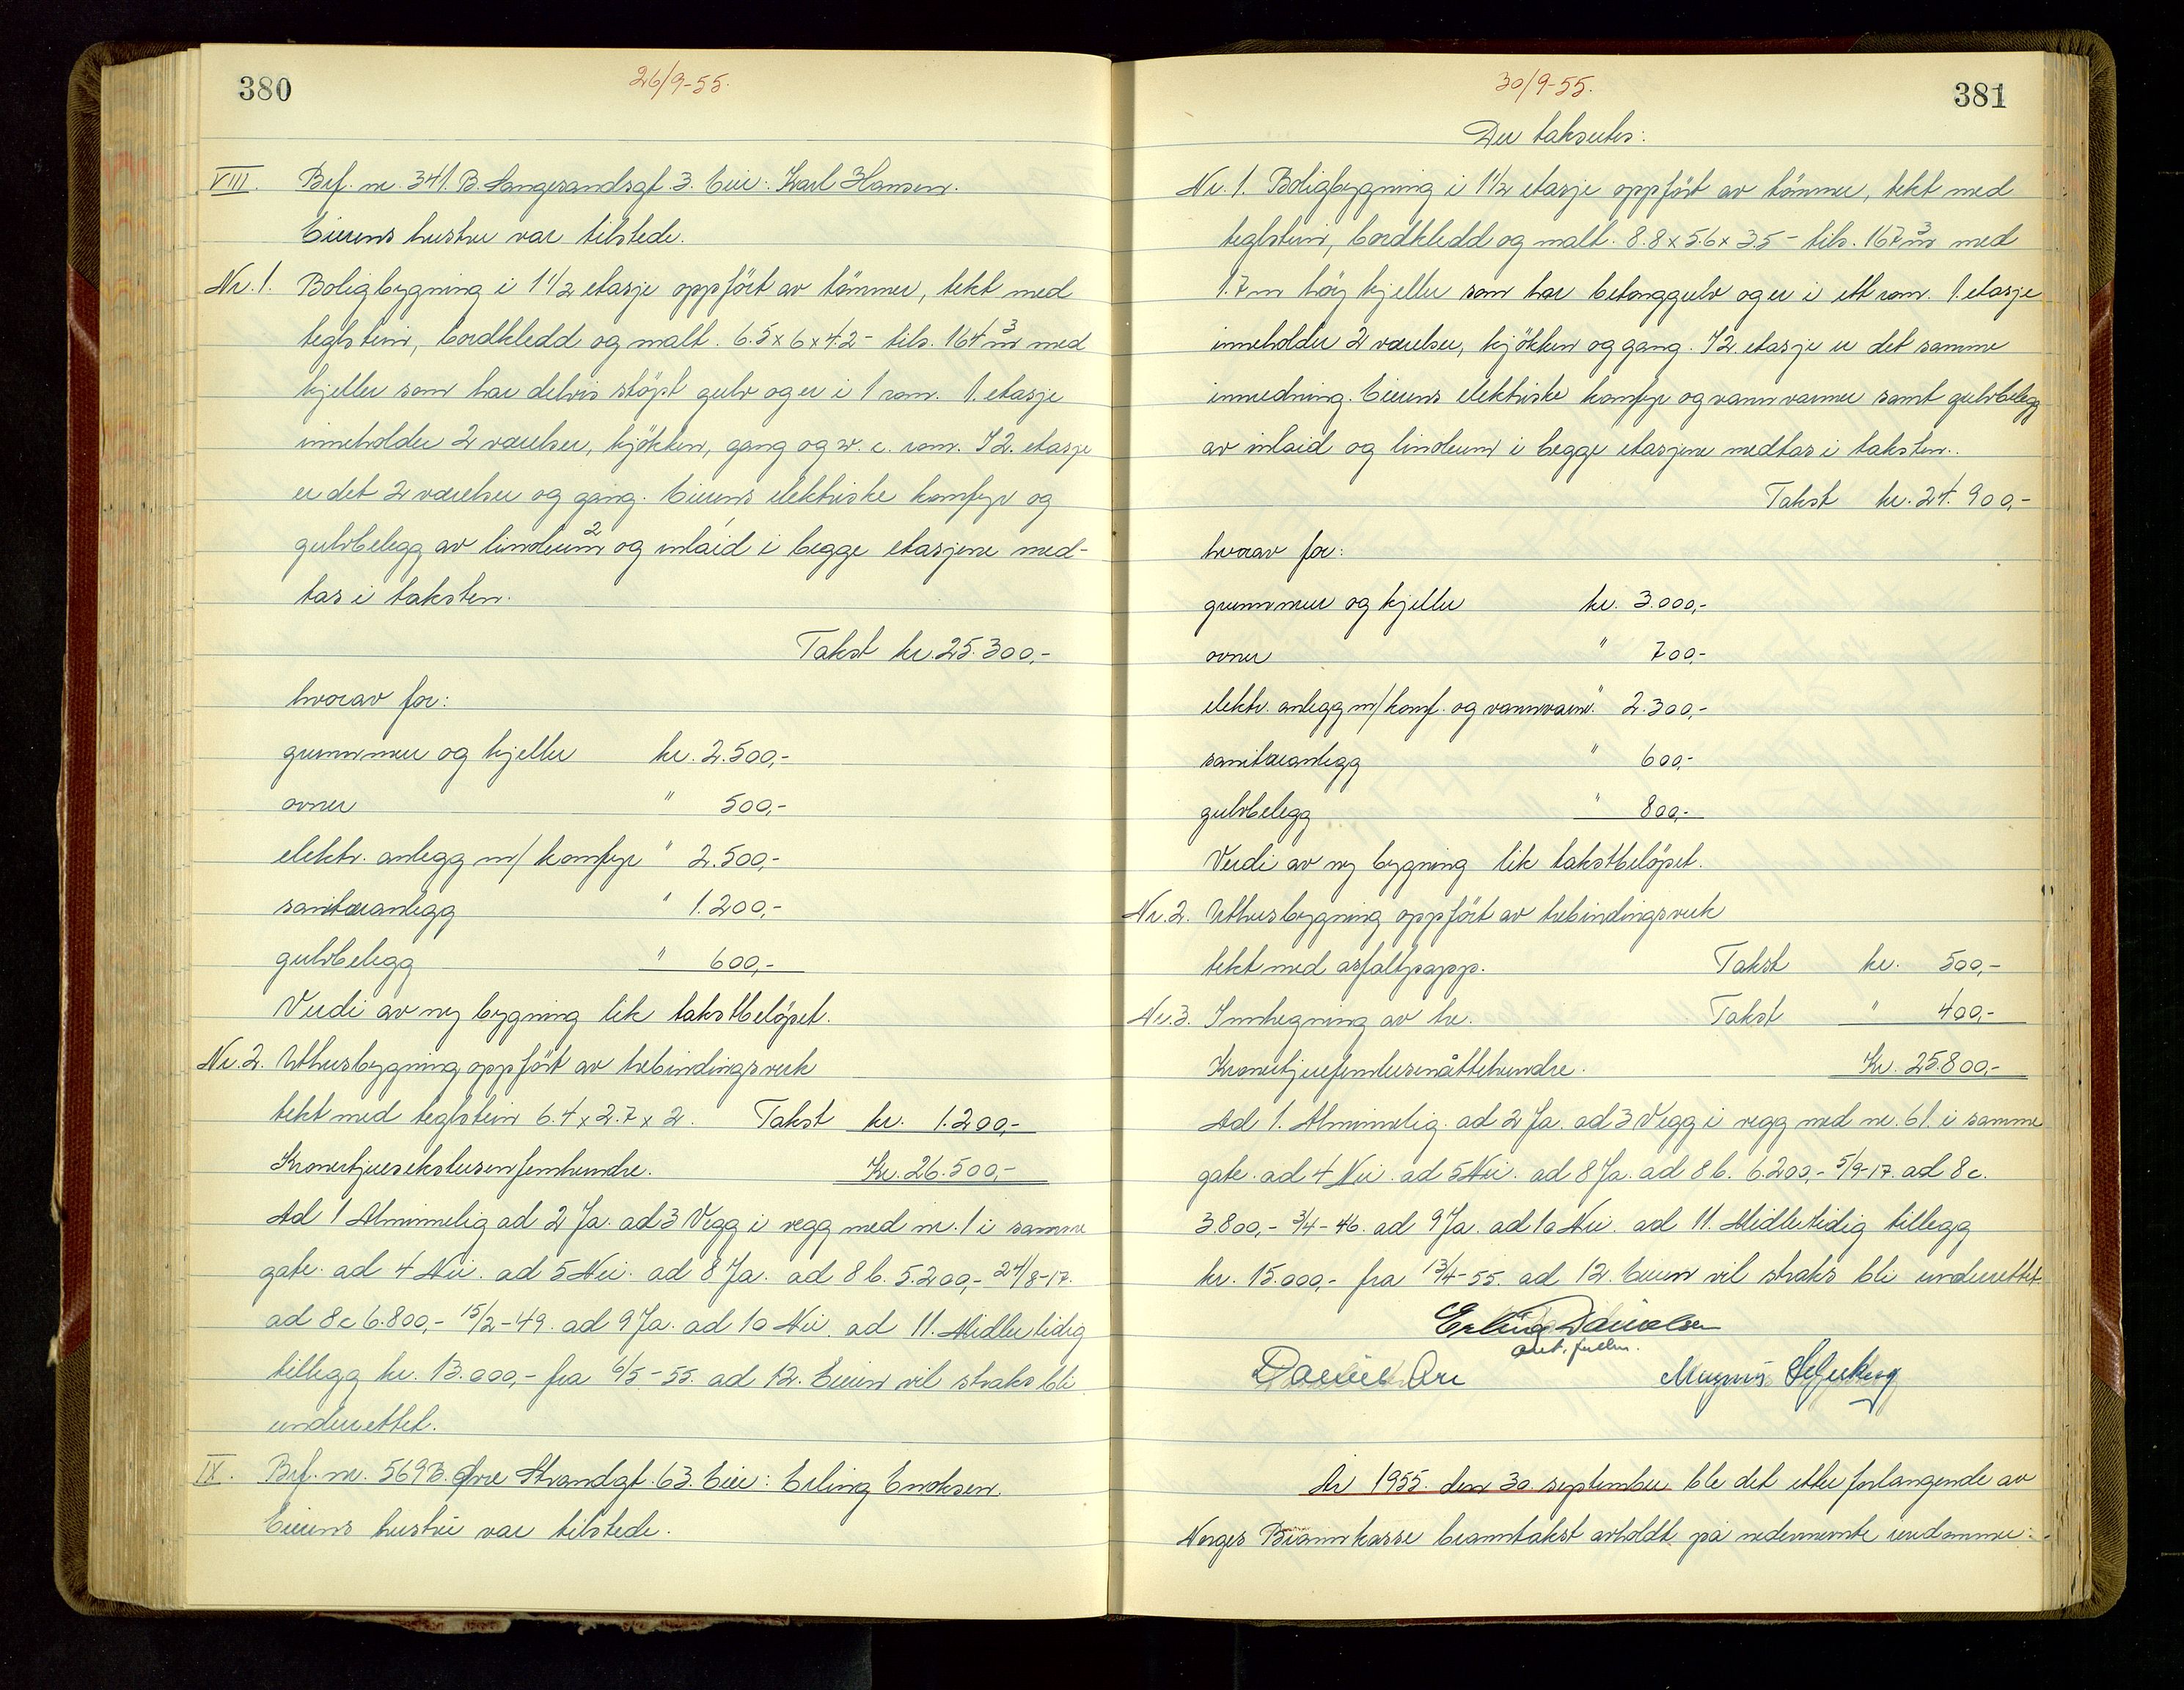 380
26/9-55.
VIII. Brf. nr. 341. B. Langesandsgt. 3. Eier: Karl Hansen.
Eierens hustru var tilstede.
Nr. 1. Boligbygning i 1 1/2 etasje oppfört av tömmer, tekt med
teglstein, bordkledd og malt. 6.5 x 6 x 4.2 - tils. 164 m³ med
kjeller som har delvis stöpt gulv og er i 1 rom. 1. etasje
inneholder 2 værelser, kjökken, gang og w. c. rom. I 2. etasje
er det 2 værelser og gang. Eierens elektriske komfyr og
gulvbelegg av linoleum og inlaid i begge etasjene med-
tas i taksten.
Takst kr. 25.300,-
hvorav for:
grunnmur og kjeller kr. 2.500,-
ovner " 500,-
elektr. anlegg m/ komfyr " 2.500,-
sanitæranlegg " 1.200,-
gulvbelegg " 600,-
Verdi av ny bygning lik takstbelöpet.
Nr. 2. Uthusbygning oppfört av trebindingsverk
tekt med teglstein 6.4 x 2.7 x 2. Takst kr. 1.200,-
Kronertjuesekstusenfemhundre. Kr. 26.500,-
Ad 1 Alminnelig ad 2 Ja. ad 3 Vegg i vegg med nr. 1 i samme
gate. ad 4 Nei. ad 5 Nei. ad 8 Ja. ad 8 b. 5.200,- 24/8-17.
ad 8c 6.800,- 15/2-49. ad 9 Ja. ad 10 Nei. ad 11. Midlertidig
tillegg kr. 13.000,- fra 6/5-55. ad 12. Eieren vil straks bli
underrettet.
IX. Brf. nr. 569 B. Övre Strandgt. 63. Eier: Erling Enoksen.
Eierens hustru var tilstede.
30/9-55.
381
Der takseres:
Nr. 1. Boligbygning i 1 1/2 etasje oppfört av tömmer, tekt med
teglstein, bordkledd og malt. 8.8 x 5.6 x 3.5 - tils. 167 m³ med
1.7 m höy kjeller som har betonggulv og er i ett rom. 1. etasje
inneholder 2 værelser, kjökken og gang. I 2 etasje er det samme
innredning. Eierens elektriske komfyr og vannvarmer samt gulvbelegg
av inlaid og linoleum i begge etasjene medtas i taksten.
Takst kr. 24.900,-
hvorav for:
grunnmur og kjeller kr. 3.000,-
ovner " 700,-
elektr. anlegg m/ komf. og vannvarm. " 2.300,-
sanitæranlegg " 600,-
gulvbelegg " 800,-
Verdi av ny bygning lik takstbelöpet.
Nr. 2. Uthusbygning oppfört av trebindingsverk
tekt med asfaltpapp. Takst kr. 500,-
Nr. 3. Innhegning av tre. Takst " 400,-
Kronertjuefemtusenåttehundre. Kr. 25.800,-
Ad 1. Alminnelig. ad 2 Ja. ad 3 Vegg i vegg med nr. 61. i samme
gate. ad 4 Nei. ad 5 Nei. ad 8 Ja. ad 8 b. 6.200,- 5/9-17. ad 8 c.
3.800,- 3/4-46. ad 9 Ja. ad 10 Nei. ad 11. Midlertidig tillegg
kr. 15.000,- fra 13/4-55. ad 12. Eieren vil straks bli underrettet.
Erling Danielsen
Daniel
Magnus
År 1955. den 30. september ble det etter forlangende av
Norges Brannkasse branntakst avholdt på nedennevnte eiendommer: